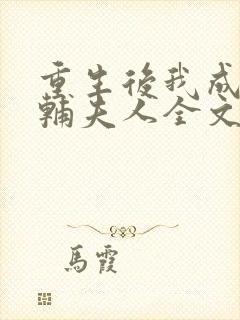 重生後我成
輔夫人全文
馬霞